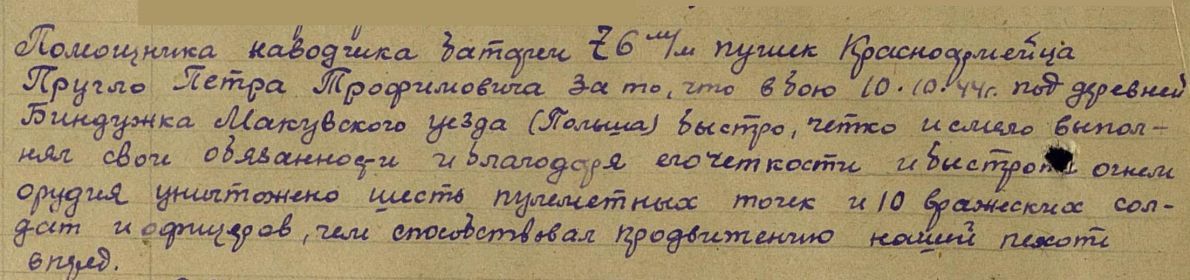 Помощника наводчика батареи 76 м/м пушек Красноармейца
Пругло Петра Трофимовича за то, что в бою 10.10.44г. под деревней
Биндужка Макувского уезда (Польша) быстро, четко и смело выпол-
нял свои обязанности и благодаря его четкости и быстроты огнем
орудия уничтожено шесть пулеметных точек и 10 вражеских сол-
дат и офицеров, чем способствовал продвижению нашей пехоты
вперед.